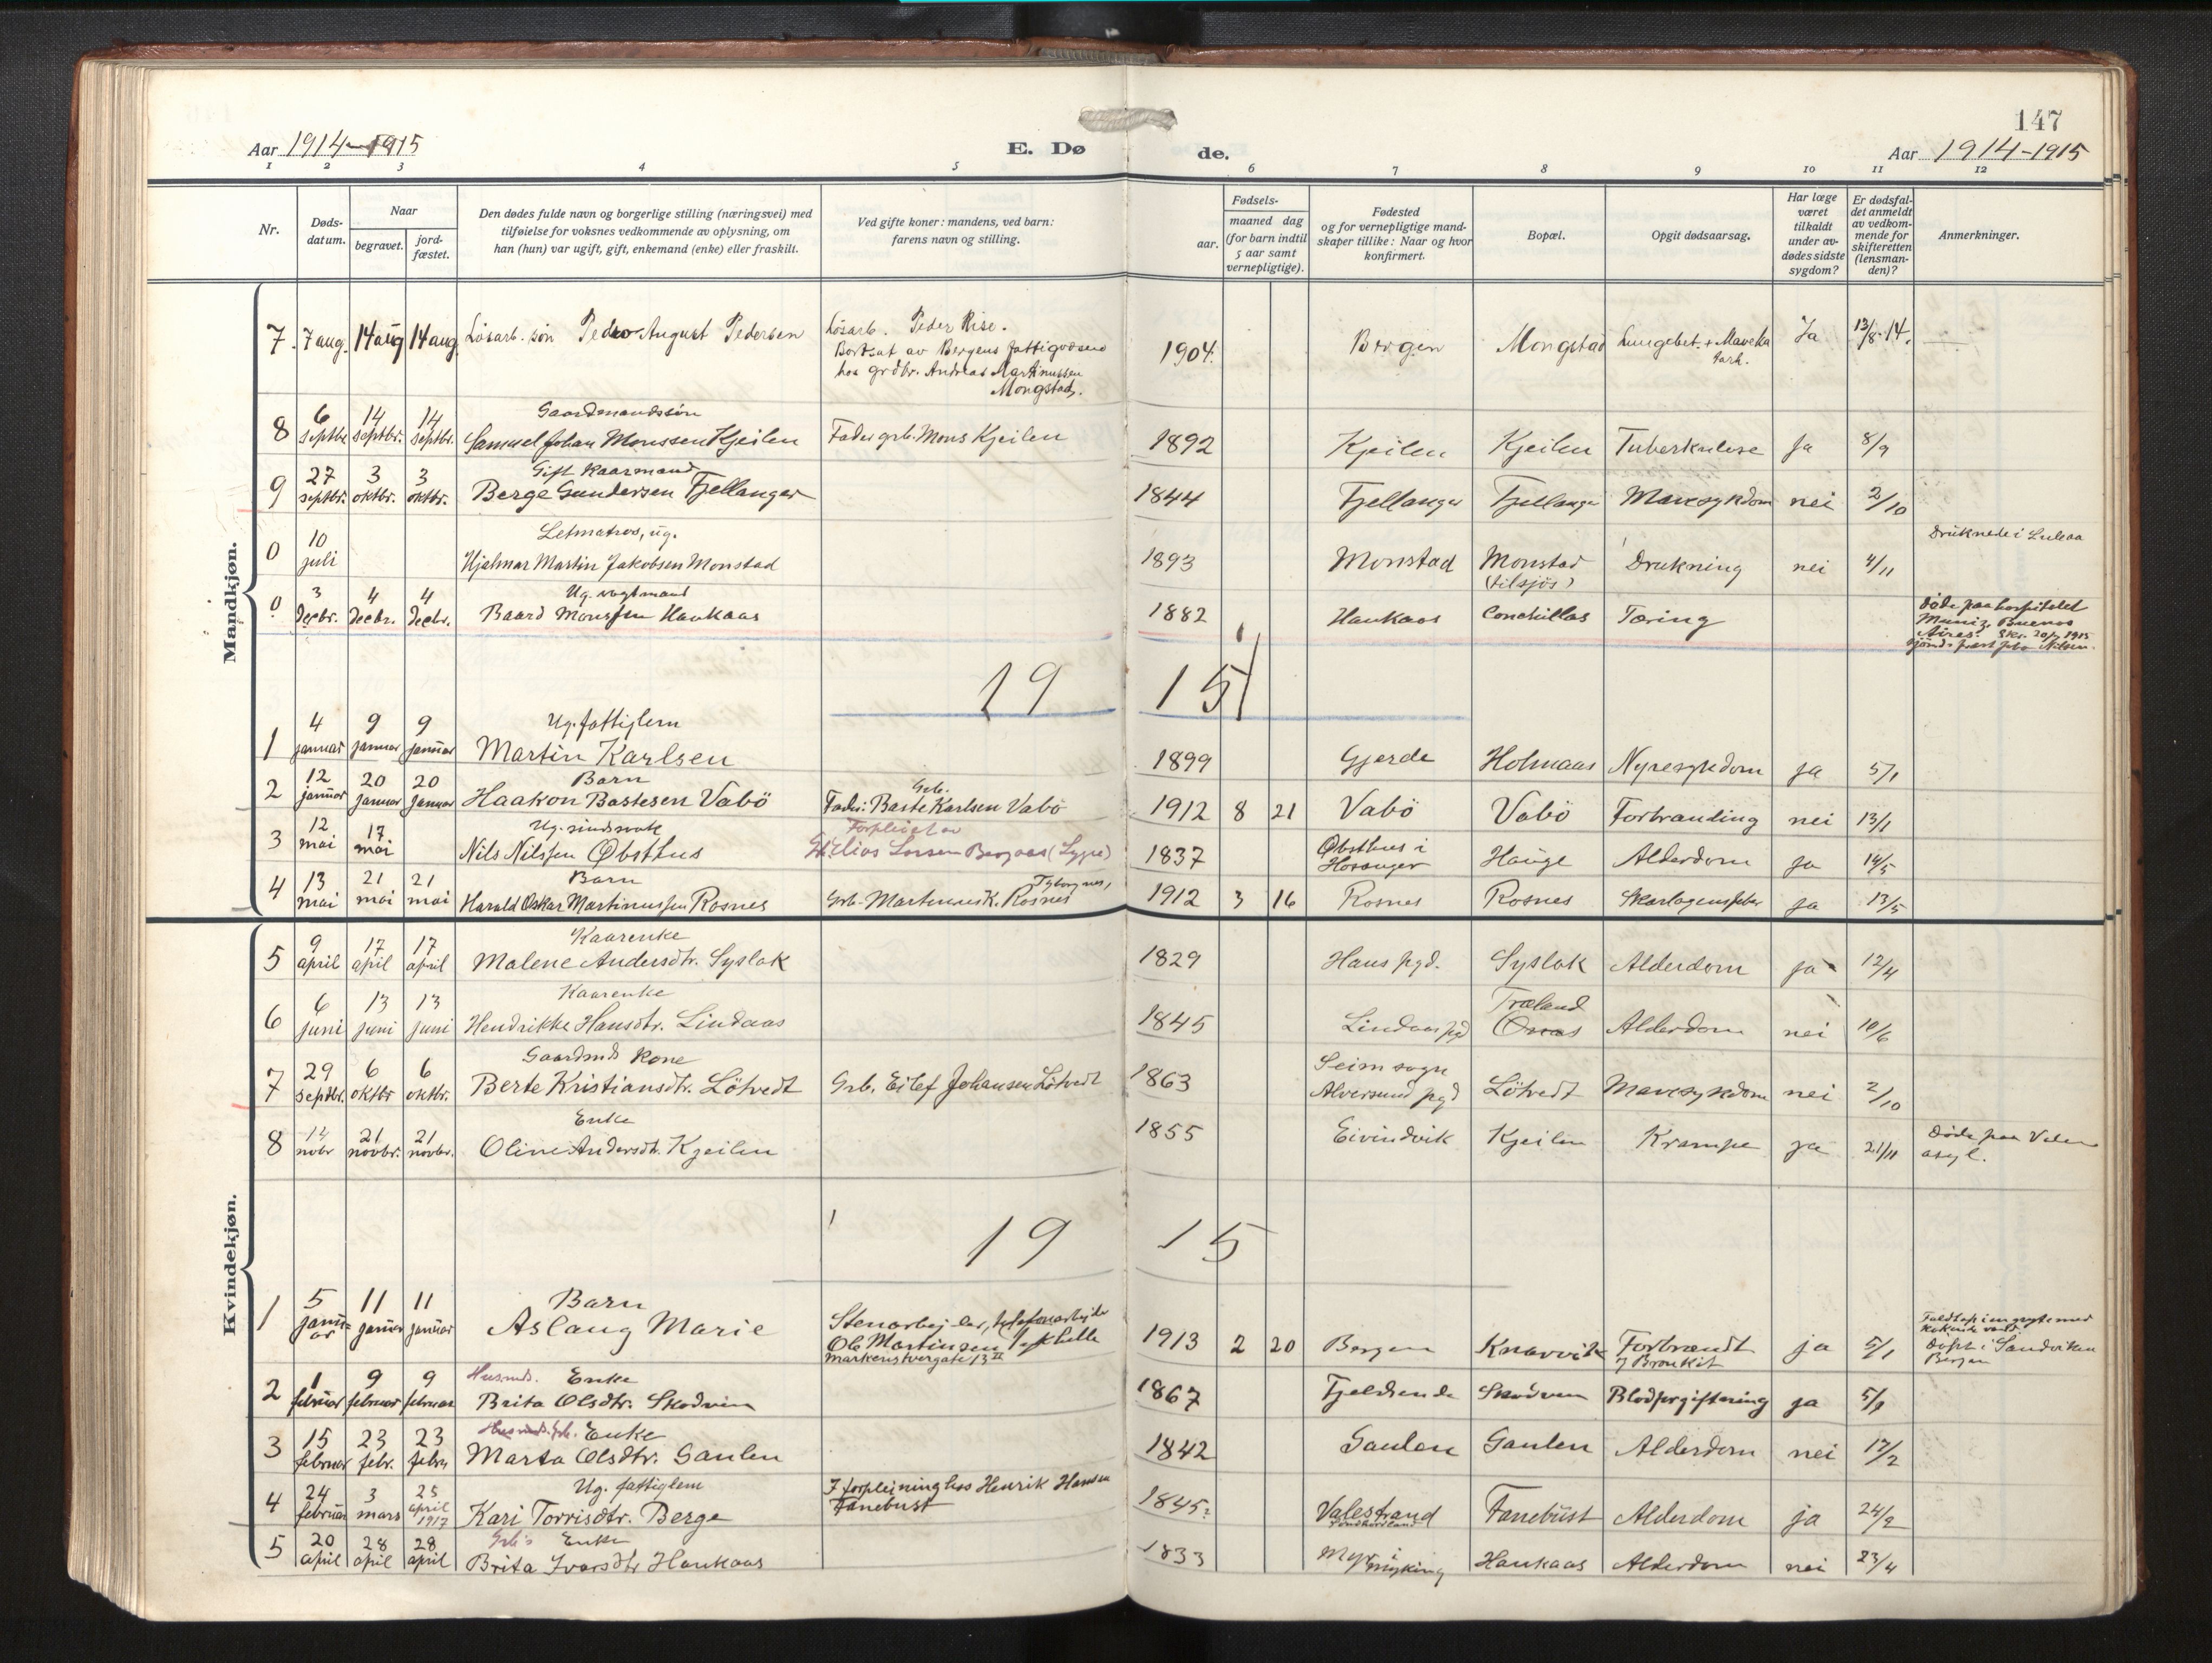 147
Aar 1914-1915
E. Dø
de.
Aar 1914-1915
1 2 3 4 5 6 7 8 9 10 11 12
Nr.
Døds-
datum.
Naar
begravet.
jord-
fæstet.
Den dødes fulde navn og borgerlige stilling (næringsvei) med
tilføielse for voksnes vedkommende av oplysning, om
han (hun) var ugift, gift, enkemand (enke) eller fraskilt.
Ved gifte koner: mandens, ved barn:
farens navn og stilling.
Fødsels-
aar.
maaned dag
(for barn indtil
5 aar samt
vernepligtige).
Fødested
og for vernepligtige mand-
skaper tillike: Naar og hvor
konfirmert.
Bopæl.
Opgit dødsaarsag.
Har læge
været
tilkaldt
under av-
dødes sidste
sygdom?
Er dødsfal-
det anmeldt
av vedkom-
mende for
skifteretten
(lensman-
den)?
Anmerkninger.
Mandkjøn.
7 7 aug. 14 aug 14 aug. Løsarb. søn Pedro August Pedersen Løsarb. Peder Rise. 1904. Bergen Mongstad Lungebet. + Maveka Ja 13/8-14.
Bortsat av Bergens fattigvæsen
tark.
hos grdbr. Andreas Martinussen
Mongstad.
Gaardmandssøn
8 6 septbr 14 septbr. 14 septbr. Samuel Johan Monssen Kjeilen Fader grb. Mons Kjeilen 1892 Kjeilen Kjeilen Tuberkulose ja 8/9
Gift kaarmand
9 27 septbr. 3 oktbr. 3 oktbr. Berge Gundersen Fjellanger 1844 Fjellanger Fjellanger Mavesykdom nei 2/10
Letmatros, ug. Druknede i Luleaa
0 10 juli Hjalmar Martin Jakobsen Monstad 1893 Monstad Monstad Drukning nei 4/11
(tilsjøs)
Ug. vogtmand
0 3 decbr. 4 decbr. 4 decbr. Baard Monssen Haukaas 1882 Haukaas Conchillas Tæring
døde paa hospitalet
Muniz, Buenos
Aires. Skr. 20/7 1915
sjømdspræst Nilsen.
19 15
Ug. fattiglem
1 4 januar 9 januar 9 januar Martin Karlsen 1899 Gjerde Holmaas Nyresykdom ja 5/1
Barn Grb.
2 12 januar 20 januar 20 januar Haakon Bastesen Vabö Fader: Baste Karlsen Vabö 1912 8 21 Vabö Vabö Forbrænding nei 13/1
Ug. sindssvak Forpleiet av
3 12 mai 17 mai Nils Nilssen Øbsthus Elias Larsen Bergaas (Sype) 1837 Øbsthus i Hosanger Hauge Alderdom ja 14/5
Barn
4 13 mai 21 mai 21 mai Harald Oskar Martinussen Rosnes Grb. Martinus K. Rosnes 1912 3 16 Rosnes Rosnes Skarlagensfeber ja 13/5
Kvindekjøn.
Kaarenke
5 9 april 17 april 17 april Malene Andersdtr. Syslak 1829 Haus pgd. Syslak Alderdom ja 12/4
Kaarenke Træland
6 6 juni 13 juni 13 juni Hendrikke Hansdtr. Lindaas 1845 Lindaas pgd Alderdom nei 10/6
Gaardmds kone Seim sogn
7 29 septbr. 6 oktbr 6 oktbr. Berte Kristiansdtr. Lötvedt Grb. Eilef Johansen Lötvedt 1863 Alversund pgd Lötvedt Mavesykdom nei 2/10
Enke
8 14 novbr 21 novbr. 21 novbr. Oline Andersdtr. Kjeilen 1855 Eivindvik Kjeilen Krampe ja 21/11 Døde paa Valen
asyl.
19 15
Barn
1 5 januar 11 januar 11 januar Aslaug Marie Stenarbejder, telefonarbejder
Ole Martinsen 1913 2 20 Bergen Knarvik Forbrændt ja 5/1
Markensvergate 13 II
7 Bronkit
Faldt op i en gryte med
kokende vand.
Døpt i Sandviken
Bergen
Husmds. Enke
2 1 februar 9 februar 9 februar Brita Olsdtr. Skodvin 1867 Fjeldsende Skodven Blodforgiftning ja 5/2
Enke
3 15 februar 23 febr. 23 febr. Marta Olsdtr. Gaulen 1842 Gaulen Gaulen Alderdom nei 17/2
Ug. fattiglem I forpleining hos Henrik Hansen
4 24 februar 3 mars 25 april 1917 Kari Torrisdtr. Berge Fanebust 1845? Valestrand Fanebust Alderdom ja 24/2
Grb's Enke
5 20 april 28 april 28 april Brita Ivarsdtr Haukaas 1833 Myr i Myking Haukaas Alderdom nei 23/4